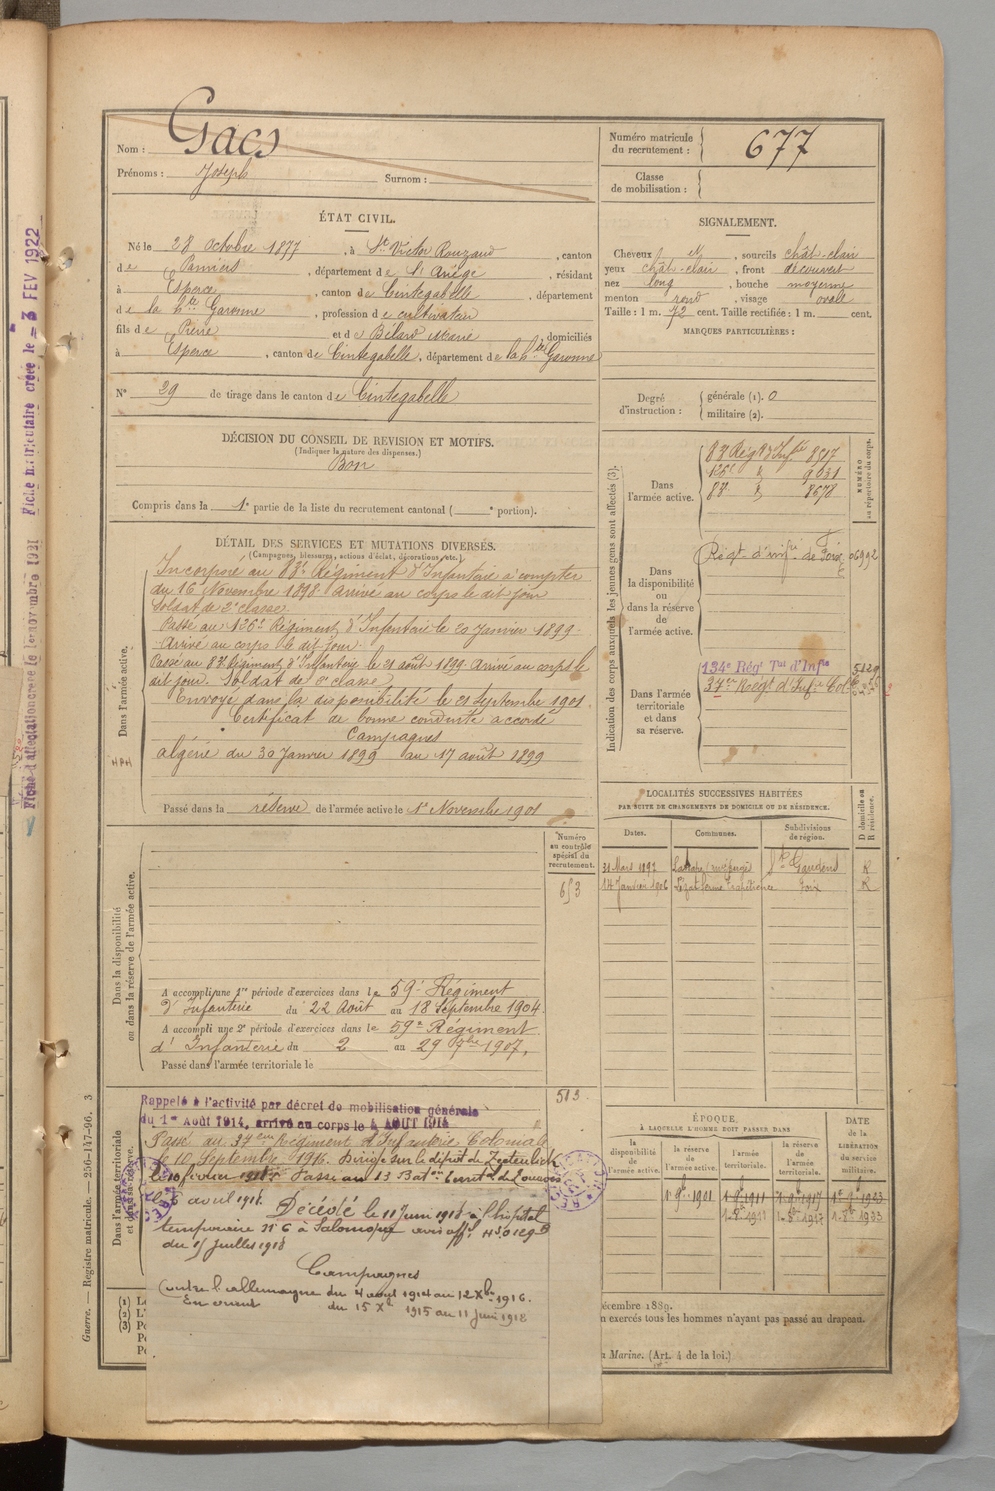 Nom : Gacs
Prénoms : Joseph Surnom :
Numéro matricule du recrutement : 677
Classe de mobilisation :
ÉTAT CIVIL.
Né le 28 Octobre 1877, à St Victor Rouzaud, canton
de Pamiers, département de l'Ariège, résidant
à Esperce, canton de Cintegabelle, département
de la Hte Garonne, profession de cultivateur
fils de Pierre et de Bélard Marie domiciliés
à Esperce, canton de Cintegabelle, département de la Hte Garonne
N° 29 de tirage dans le canton de Cintegabelle
SIGNALEMENT.
Cheveux et, sourcils chât-clair
yeux chât-clair, front découvert
nez long, bouche moyenne
menton rond, visage ovale
Taille : 1 m. 72 cent. Taille rectifiée : 1 m. cent.
MARQUES PARTICULIÈRES :
Degré d'instruction : générale (1). 0
militaire (2).
DÉCISION DU CONSEIL DE REVISION ET MOTIFS.
(Indiquer la nature des dispenses.)
Bon
Compris dans la 1e partie de la liste du recrutement cantonal ( e portion).
DÉTAIL DES SERVICES ET MUTATIONS DIVERSES.
(Campagnes, blessures, actions d'éclat, décorations, etc.)
Dans l'armée active.
Incorporé au 83e Régiment d'Infanterie à compter
du 16 Novembre 1898. Arrivé au corps le dit jour
Soldat de 2e classe
Passé au 126e Régiment d'Infanterie le 20 Janvier 1899
Arrivé au corps le dit jour.
Passé au 83e Régiment d'Infanterie le 21 août 1899. Arrivé au corps le
dit jour. Soldat de 2e classe
Envoyé dans la disponibilité le 21 Septembre 1901.
Certificat de bonne conduite accordé
Campagnes
algérie du 30 Janvier 1899 au 17 août 1899
Passé dans la réserve de l'armée active le 1er Novembre 1901
Indication des corps auxquels les jeunes gens sont affectés (3).
NUMÉRO au répertoire du corps.
Dans l'armée active.
83e Régt d'Infie 8517
126e d° 9031
83e d° 8678
Dans la disponibilité ou dans la réserve de l'armée active.
Régt d'infie de Foix 06992
Dans l'armée territoriale et dans sa réserve.
134e Régt Tal d'Infie 5129
37e Régt d'Infie Cole
LOCALITÉS SUCCESSIVES HABITÉES
PAR SUITE DE CHANGEMENTS DE DOMICILE OU DE RÉSIDENCE.
Dates. Communes. Subdivisions de région. D domicile ou R résidence.
31 Mars 1893 St Gaudens R
14 Janvier 1906 Foix R
Dans la disponibilité ou dans la réserve de l'armée active.
Numéro au contrôle spécial du recrutement.
653
A accompli une 1re période d'exercices dans le 59e Régiment
d'Infanterie du 22 Août au 18 Septembre 1904.
A accompli une 2e période d'exercices dans le 59e Régiment
d'Infanterie du 2 au 29 7bre 1907.
Passé dans l'armée territoriale le
Dans l'armée territoriale et dans sa réserve.
513
Rappelé à l'activité par décret de mobilisation générale
du 1er Août 1914, arrivé au corps le 4 AOUT 1914
Passé au 37eme Régiment d'Infanterie Coloniale
le 10 Septembre 1916. Dirigé sur le dépôt de Zeytenlick
le 10 février Passé au 13 Baton
le 6 avril 1918.
Décédé le 11 Juin 1918 à l'hôpital
temporaire N° 6 à Salonique avis offl
du 15 Juillet 1918
Campagnes
Contre l'allemagne du 4 aout 1914 au 12 Xbre 1916.
En orient du 15 Xe 1915 au 11 Juin 1918
ÉPOQUE
À LAQUELLE L'HOMME DOIT PASSER DANS
la disponibilité de l'armée active. la réserve de l'armée active. l'armée territoriale. la réserve de l'armée territoriale. DATE de la LIBÉRATION du service militaire.
1 9e 1901 1 9e 1911 1 9e 1917 1er 9e 1923
1-8e 1911 1-8e 1917 1-8e 1923
(1) L
(2) L'
(3) P
P
P
écembre 1889.
n exercés tous les hommes n'ayant pas passé au drapeau.
a Marine. (Art. 4 de la loi.)
Guerre. — Registre matricule. — 256-147-96. 3
Fiche d'affectation créée le 1er novembre 1921 Fiche matriculaire créée le = 3 FEV 1922